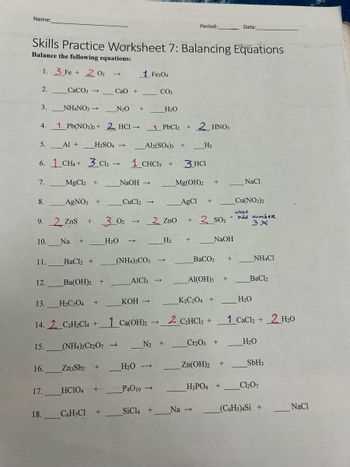 Name: Period: Date:
Skills Practice Worksheet 7: Balancing Equations
Balance the following equations:
1. 3 Fe + 2 O₂ → 1 Fe₃O₄
2. ___CaCO₃ → ___CaO + ___CO₂
3. ___NH₄NO₃ → ___N₂O + ___H₂O
4. 1 Pb(NO₃)₂ + 2 HCl → 1 PbCl₂ + 2 HNO₃
5. ___Al + ___H₂SO₄ → ___Al₂(SO₄)₃ + ___H₂
6. 1 CH₄ + 3 Cl₂ → 1 CHCl₃ + 3 HCl
7. ___MgCl₂ + ___NaOH → ___Mg(OH)₂ + ___NaCl
8. ___AgNO₃ + ___CuCl₂ → ___AgCl + ___Cu(NO₃)₂
9. 2 ZnS + 3 O₂ → 2 ZnO + 2 SO₂ odd number 3x
10. ___Na + ___H₂O → ___H₂ + ___NaOH
11. ___BaCl₂ + ___(NH₄)₂CO₃ → ___BaCO₃ + ___NH₄Cl
12. ___Ba(OH)₂ + ___AlCl₃ → ___Al(OH)₃ + ___BaCl₂
13. ___H₂C₂O₄ + ___KOH → ___K₂C₂O₄ + ___H₂O
14. 2 C₂H₂Cl₄ + 1 Ca(OH)₂ → 2 C₂HCl₃ + 1 CaCl₂ + 2 H₂O
15. ___(NH₄)₂Cr₂O₇ → ___N₂ + ___Cr₂O₃ + ___H₂O
16. ___Zn₃Sb₂ + ___H₂O → ___Zn(OH)₂ + ___SbH₃
17. ___HClO₄ + ___P₄O₁₀ → ___H₃PO₄ + ___Cl₂O₇
18. ___C₆H₅Cl + ___SiCl₄ + ___Na → ___(C₆H₅)₄Si + ___NaCl